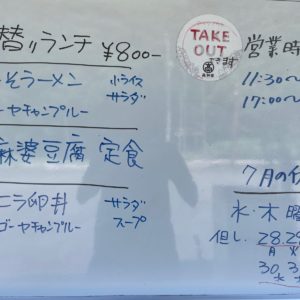 替りランチ ¥800-
そラーメン 小ライス
ーヤチャンプルー サラダ
麻婆豆腐 定食
ニラ卵丼 サラダ
ゴーヤチャンプルー スープ
TAKE
OUT
できます
営業時
11:30〜
17:00〜
7月の
水・木曜
但し、28.29
月 火
30.3
水